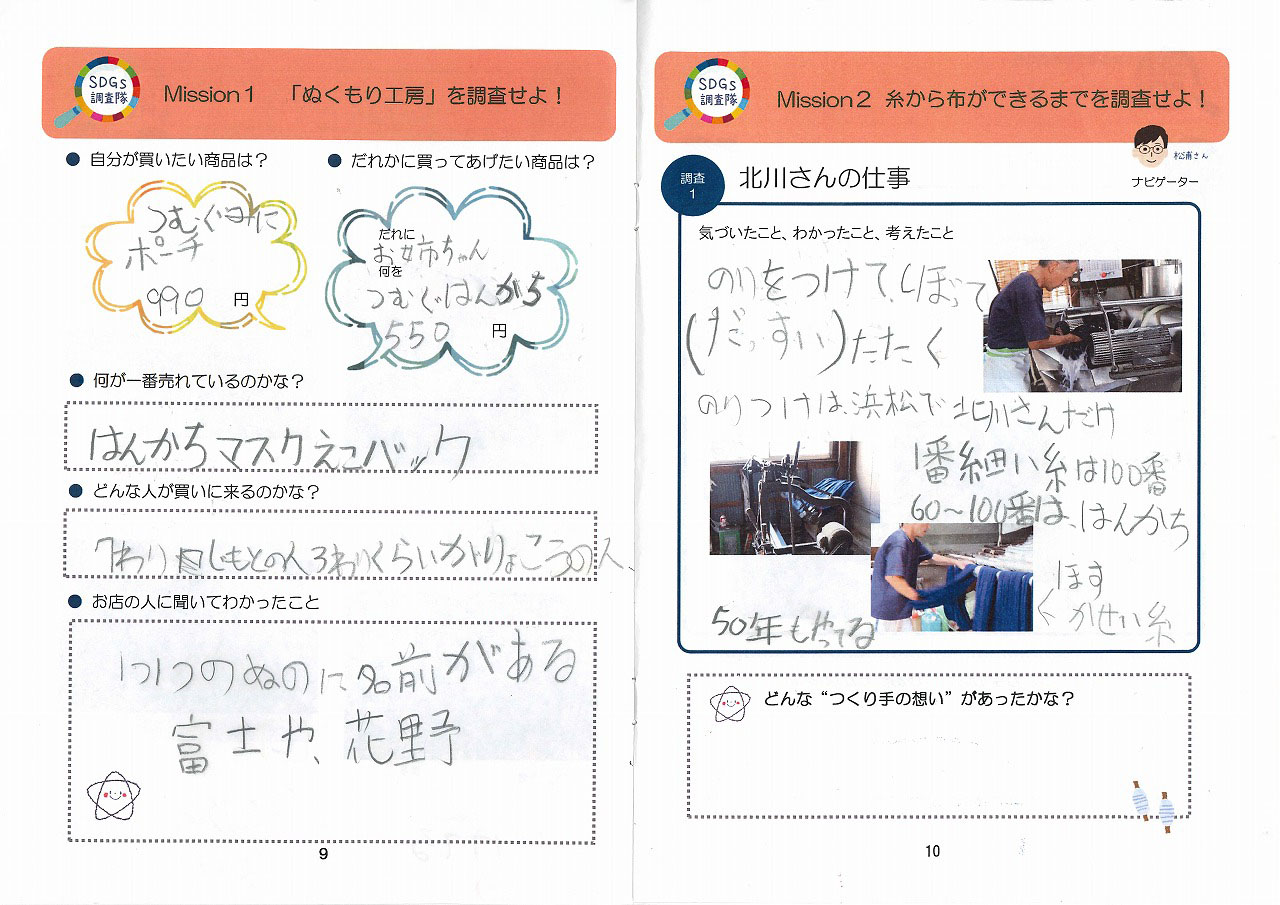 SDGs
調査隊
Mission1 「ぬくもり工房」を調査せよ！
● 自分が買いたい商品は？
つむぐ
ポーチ
990 円
● だれかに買ってあげたい商品は？
だれに
お姉ちゃん
何を
つむぐはんかち
550 円
● 何が一番売れているのかな？
はんかちマスクえこバック
● どんな人が買いに来るのかな？
7わり じもとの人3わりくらいがりょこうの人
● お店の人に聞いてわかったこと
1つ1つのぬのに名前がある
富士や、花野
9
SDGs
調査隊
Mission2 糸から布ができるまでを調査せよ！
松浦さん
ナビゲーター
調査
1
北川さんの仕事
気づいたこと、わかったこと、考えたこと
のりをつけて、しぼって
(だっすい)たたく
のりつけは、浜松で北川さんだけ
1番細い糸は100番
60～100番は、はんかち
ほす
かせい糸
50年もやってる
どんな“つくり手の想い”があったかな？
10